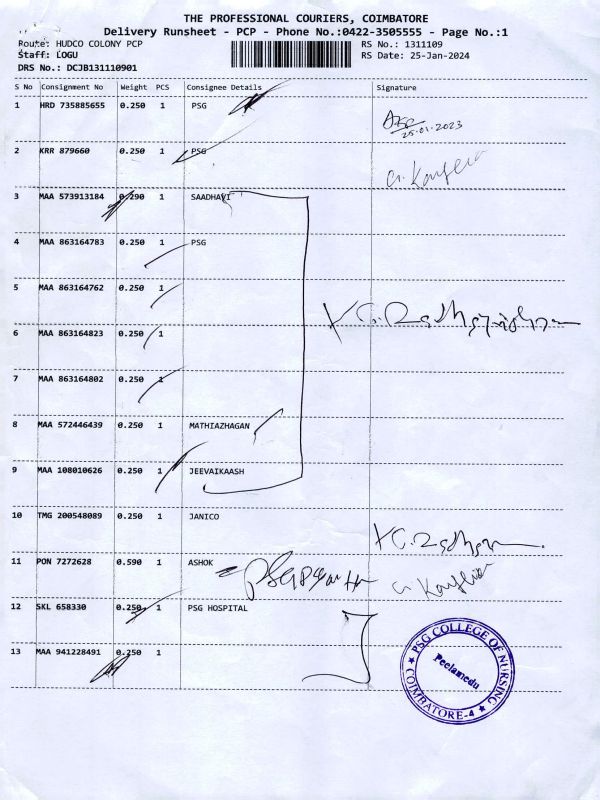 THE PROFESSIONAL COURIERS, COIMBATORE
Delivery Runsheet - PCP - Phone No.:0422-3505555 - Page No.:1
Route: HUDCO COLONY PCP
RS No.: 1311109
Staff: LOGU
RS Date: 25-Jan-2024
DRS No.: DCJB131110901
S No Consignment No Weight PCS Consignee Details Signature
1 HRD 735885655 0.250 1 PSG
25.01.2023
2 KRR 879660 0.250 1 PSG
3 MAA 573913184 0.290 1 SAADHAVI
4 MAA 863164783 0.250 1 PSG
5 MAA 863164762 0.250 1
6 MAA 863164823 0.250 1
7 MAA 863164802 0.250 1
8 MAA 572446439 0.250 1 MATHIAZHAGAN
9 MAA 108010626 0.250 1 JEEVAIKAASH
10 TMG 200548089 0.250 1 JANICO
11 PON 7272628 0.590 1 ASHOK
12 SKL 658330 0.250 1 PSG HOSPITAL
13 MAA 941228491 0.250 1
PSG COLLEGE OF NURSING
Peelamedu
COIMBATORE-4